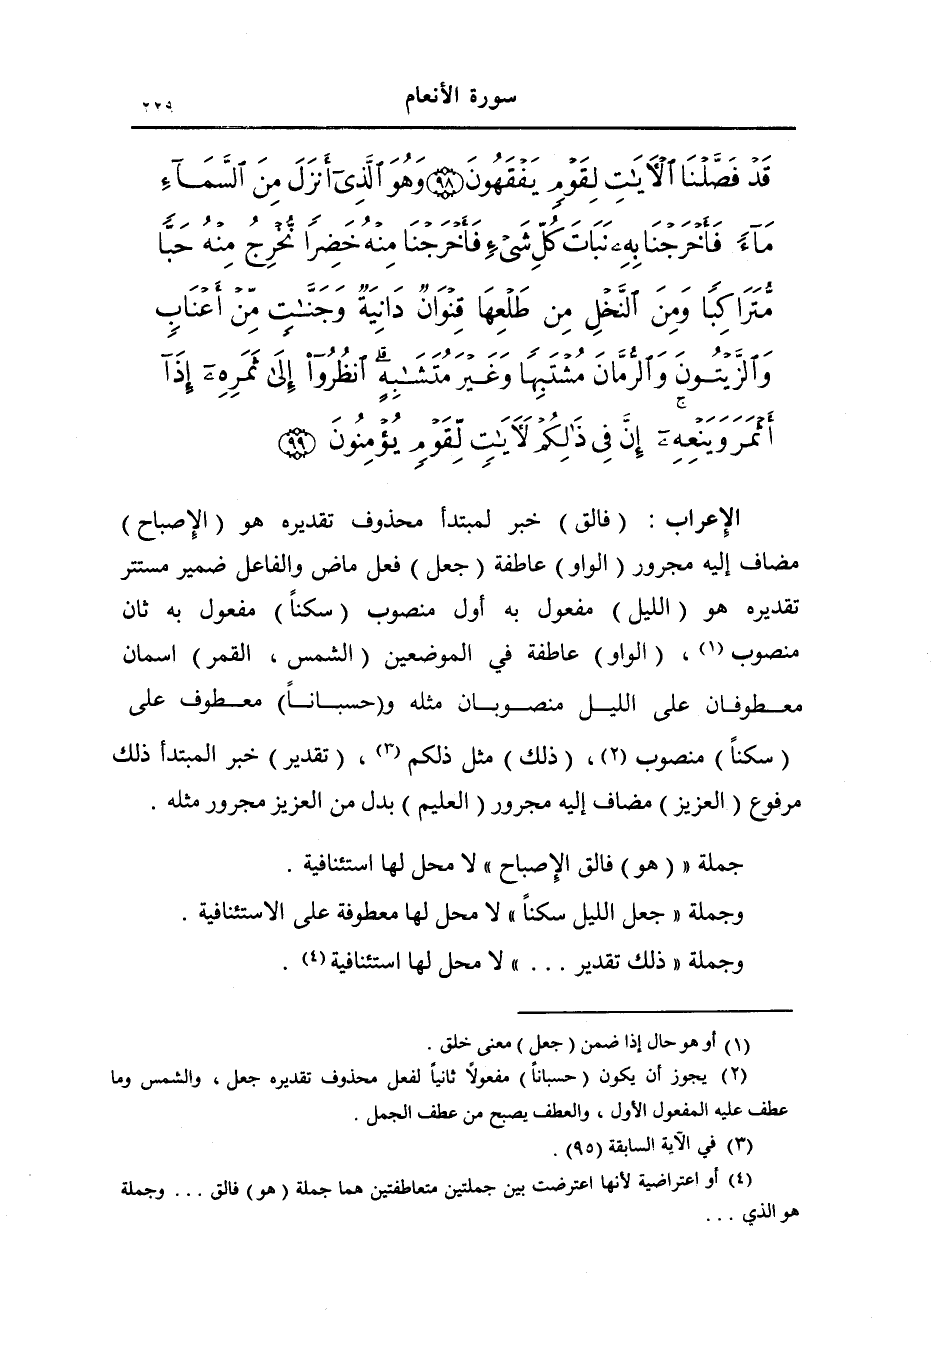 سورة الأنعام
٢٢٩
قَدْ فَصَّلْنَا ٱلْآيَٰتِ لِقَوْمٍ يَفْقَهُونَ ﴿٩٨﴾ وَهُوَ ٱلَّذِىٓ أَنزَلَ مِنَ ٱلسَّمَآءِ
مَآءً فَأَخْرَجْنَا بِهِۦ نَبَاتَ كُلِّ شَىْءٍ فَأَخْرَجْنَا مِنْهُ خَضِرًا نُّخْرِجُ مِنْهُ حَبًّا
مُّتَرَاكِبًا وَمِنَ ٱلنَّخْلِ مِن طَلْعِهَا قِنْوَانٌ دَانِيَةٌ وَجَنَّٰتٍ مِّنْ أَعْنَابٍ
وَٱلزَّيْتُونَ وَٱلرُّمَّانَ مُشْتَبِهًا وَغَيْرَ مُتَشَٰبِهٍ ۗ ٱنظُرُوٓا۟ إِلَىٰ ثَمَرِهِۦٓ إِذَآ
أَثْمَرَ وَيَنْعِهِۦٓ ۚ إِنَّ فِى ذَٰلِكُمْ لَآيَٰتٍ لِّقَوْمٍ يُؤْمِنُونَ ﴿٩٩﴾
الإعراب : ( فالق ) خبر لمبتدأ محذوف تقديره هو ( الإصباح )
مضاف إليه مجرور ( الواو ) عاطفة ( جعل ) فعل ماض والفاعل ضمير مستتر
تقديره هو ( الليل ) مفعول به أول منصوب ( سكناً ) مفعول به ثان
منصوب (١) ، ( الواو ) عاطفة في الموضعين ( الشمس ، القمر ) اسمان
معطوفان على الليل منصوبان مثله و(حسباناً) معطوف على
( سكناً ) منصوب (٢) ، ( ذلك ) مثل ذلكم (٣) ، ( تقدير ) خبر المبتدأ ذلك
مرفوع ( العزيز ) مضاف إليه مجرور ( العليم ) بدل من العزيز مجرور مثله .
جملة « ( هو ) فالق الإصباح » لا محل لها استئنافية .
وجملة « جعل الليل سكناً » لا محل لها معطوفة على الاستئنافية .
وجملة « ذلك تقدير . . . » لا محل لها استئنافية (٤) .
(١) أو هو حال إذا ضمن ( جعل ) معنى خلق .
(٢) يجوز أن يكون ( حسباناً ) مفعولاً ثانياً لفعل محذوف تقديره جعل ، والشمس وما
عطف عليه المفعول الأول ، والعطف يصبح من عطف الجمل .
(٣) في الآية السابقة (٩٥) .
(٤) أو اعتراضية لأنها اعترضت بين جملتين متعاطفتين هما جملة ( هو ) فالق . . . وجملة
هو الذي . . .